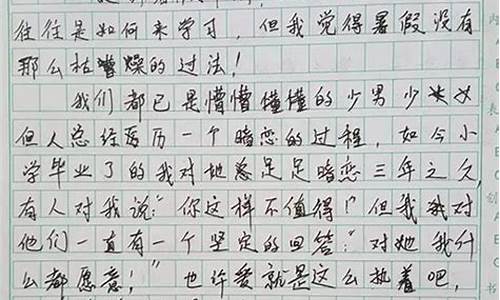 往往是如何来学习，但我觉得暑假没有
那么枯燥的过法！
我们都已是懵懵懂懂的少男少女
但人总经历一个暗恋的过程，如今小
学毕业了的我对她总足足暗恋三年之久，
有人对我说："你这样不值得！"但我对
他们一直有一个坚定的回答："对她我什
么都愿意！"也许爱就是这么执着吧，